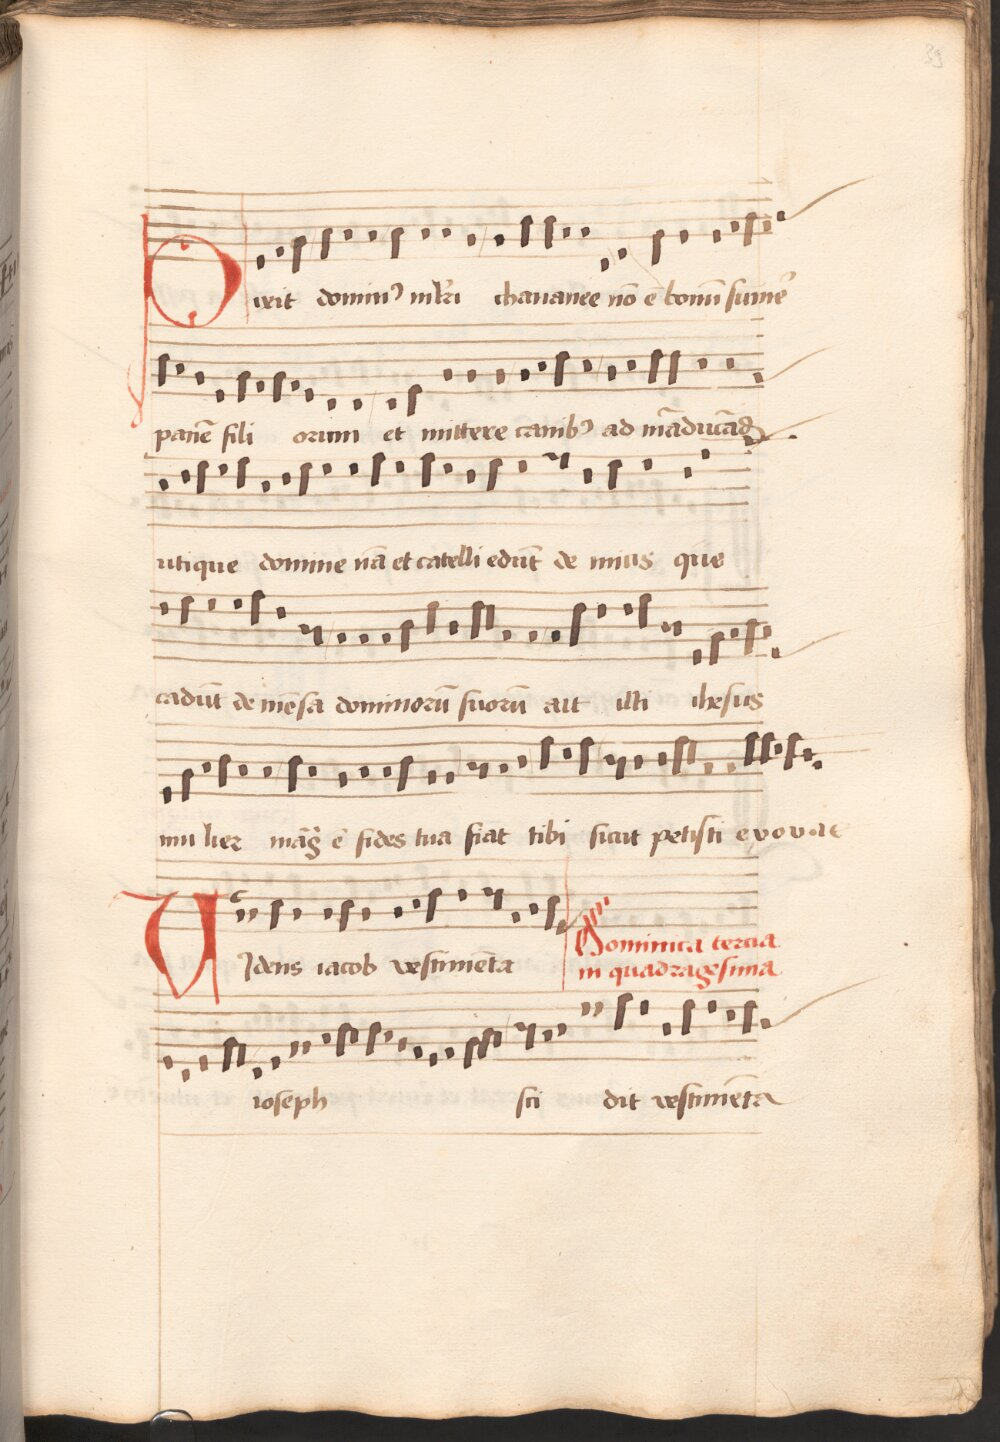 39
Dixit domin⁹ mľri chananee nō ē bonū sume᷒
panē fili orum et mittere canib⁹ ad māducādū
utique domine nā et catelli edūt de micis que
cadūt de mēsa dominorū suorū ait illi ihesus
mulier māg ē fides tua fiat tibi sicut petisti evovae
Videns iacob vestimēta
Dominica tercia
in quadragesima
ioseph sci dit vestimēta